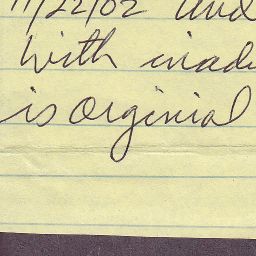 11/22/02 and
with inad
is orginial